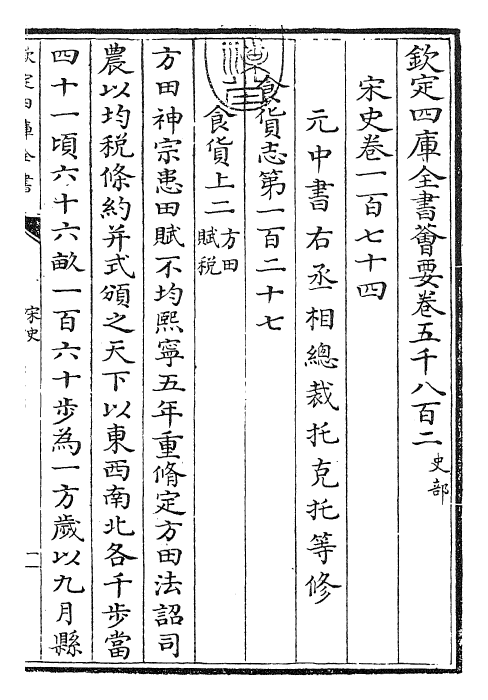 欽定四庫全書薈要卷五千八百二 史部
宋史卷一百七十四
元中書右丞相總裁托克托等修
食貨志第一百二十七
食貨上二 方田 賦税
方田神宗患田賦不均熙寧五年重脩定方田法詔司
農以均税條約并式頒之天下以東西南北各千步當
四十一頃六十六畝一百六十步為一方歲以九月縣
欽定四庫全書
宋史